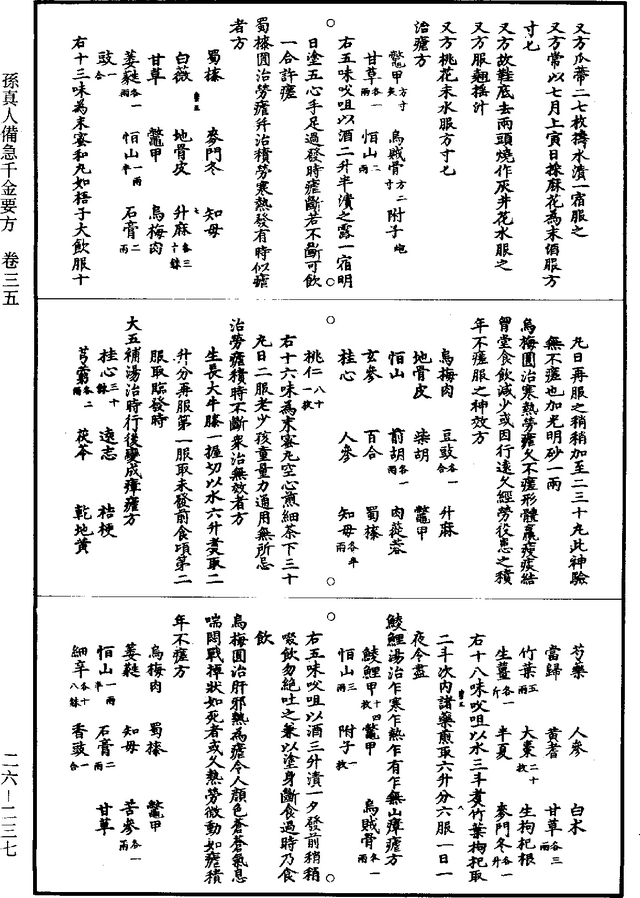 又方瓜蒂二七枚擣水漬一宿服之
又方常以七月上寅日採麻花為末酒服方
寸匕
又方故鞋底去兩頭燒作灰井花水服之
又方服翹搖汁
又方桃花未水服方寸匕
治瘧方
鼈甲方寸 烏賊骨方二寸 附子炮
甘草各一兩 恒山二兩
右五味㕮咀以酒二升半漬之露一宿明
日塗五心手足過發時瘧斷若不斷可飲
一合許瘥
蜀㯶圓治勞瘧并治積勞寒熱發有時似瘧
者方
蜀㯶 麥門冬 知母
白薇 地骨皮 升麻各三十銖
甘草 鼈甲 烏梅肉
萎蕤各一兩 恒山一兩半 石膏二兩
豉一合
右十三味為末蜜和丸如梧子大飲服十
丸日再服之稍稍加至二三十丸此神驗
無不瘥也加光明砂一兩
烏梅圓治寒熱勞瘧久不瘥形體羸瘦痰結
胷堂食飲減少或因行遠久經勞役患之積
年不瘥服之神效方
烏梅肉 豆豉各一合 升麻
地骨皮 柴胡 鼈甲
恒山 前胡各一兩 肉蓯蓉
玄參 百合 蜀㯶
桂心 人參 知母各半兩
桃仁八十一枚
右十六味為末蜜丸空心煎細茶下三十
丸日二服老少孩童量力通用無所忌
治勞瘧積時不斷衆治無效者方
生長大牛膝一握切以水六升煑取二
升分再服第一服取未發前食頃第二
服取臨發時
大五補湯治時行後變成瘴瘧方
桂心三十銖 遠志 桔梗
芎藭各二兩 茯苓 乾地黃
芍藥 人參 白术
當歸 黃耆 甘草各三兩
竹葉五兩 大棗二十枚 生枸杞根
生薑各一斤 半夏 麥門冬各一升
右十八味㕮咀以水三斗煑竹葉枸杞取
二斗次內諸藥煎取六升分六服一日一
夜令盡
鯪鯉湯治乍寒乍熱乍有乍無山瘴瘧方
鯪鯉甲十四枚 鼈甲 烏賊骨各一兩
恒山三兩 附子一枚
右五味㕮咀以酒三升漬一夕發前稍稍
啜飲勿絶吐之兼以塗身斷食過時乃食
飲
烏梅圓治肝邪熱為瘧令人顏色蒼蒼氣息
喘悶戰掉狀如死者或久熱勞微動如瘧積
年不瘥方
烏梅肉 蜀㯶 鼈甲
萎蕤 知母 苦參各一兩
恒山一兩半 石膏二兩 甘草
細辛各十八銖 香豉一合
孫真人備急千金要方 卷三五
二六—二三七